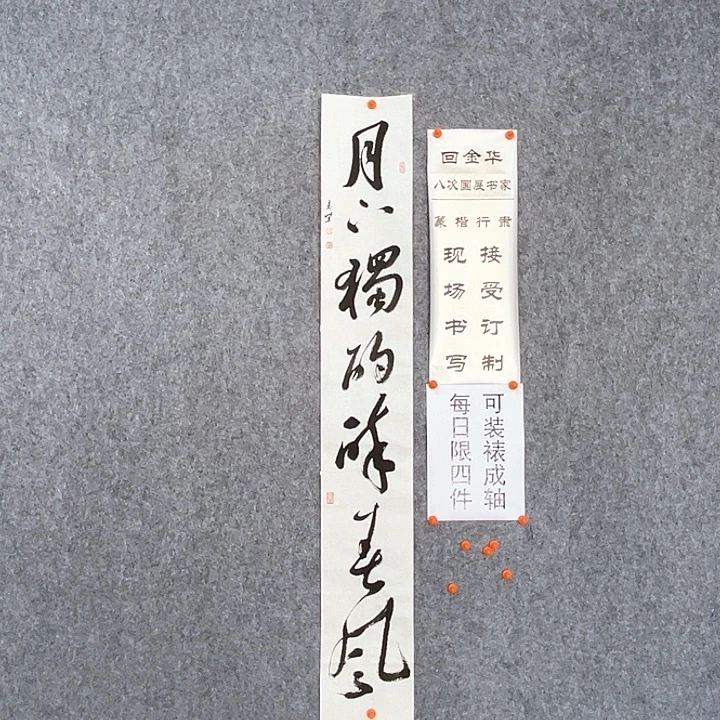 月下獨酌醉春風
回金华
八次国展书家
篆楷行隶
接受订制
现场书写
可装裱成轴
每日限四件